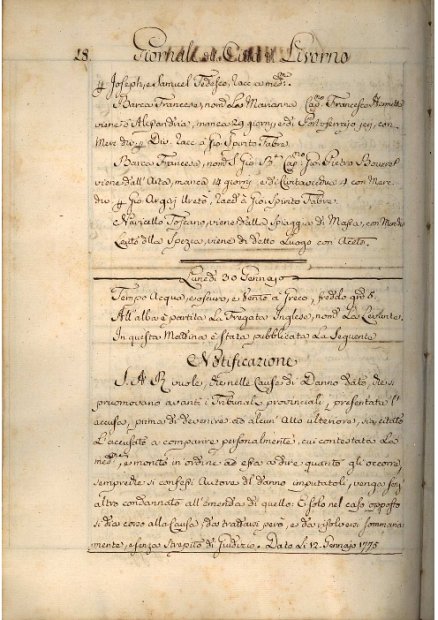 18. Giornale Livorno
Joseph, e Samuel Tedesco, racc. a med.ᵐⁱ
Barca Francese, nom.ᵗᵃ La Marianna Cap.ⁿᵒ Francesco
viene d'Alessandria, manca 29 giorni, e di Portoferrajo jeri, con
Merc. div. Div. racc. a Gio. Spirito Fabre.
Barca Francese, nom.ᵗᵃ S. Gio. Bᵗᵃ Cap.ⁿᵒ Gio. Pietro
viene dall' Arta, manca 14 giorni, e di Civitavecchia 4 con Merc.
div. Gio. racc. a Gio. Spirito Fabre.
Navicello Toscano, viene dalla Spiaggia di Massa, con
della Spezia, viene di detto Luogo con Aceto.
Lunedì 30 Gennajo
Tempo Acqua, e oscuro, e Vento a Greco, freddo gr.
All'alba è partita La Fregata Inglese, nom.ᵗᵃ La Levante.
In questa Mattina è stata pubblicata La Seguente
Notificazione
S. A. R. vuole, che nelle Cause di Danno dato, che si
promovano avanti i Tribunali provinciali, presentata l'
accusa, prima di devenire ad alcun' Atto ulteriore, sia citato
L'accusato a comparire personalmente, cui contestata La
med.ᵐᵃ, e monito in ordine ad essa a dire quanto gli occorre,
sempre che si confessi Autore del danno imputatoli, venga senz'
altro condannato all'emenda di quello: E solo nel caso opposto
si dia corso alla Causa, da trattarsi però, e da risolversi sommaria
mente, e senza Strepito di Giudizio. Dato Li 12. Gennajo 1775